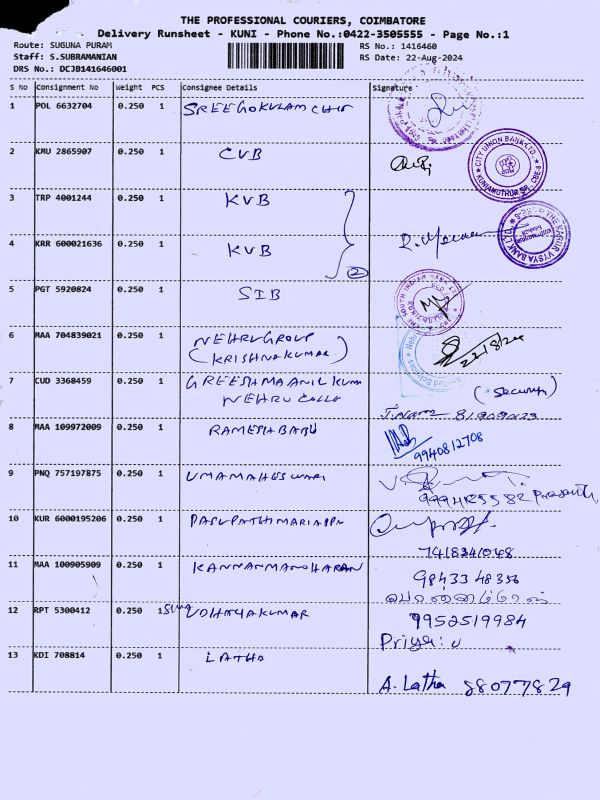 THE PROFESSIONAL COURIERS, COIMBATORE
Delivery Runsheet - KUNI - Phone No.:0422-3505555 - Page No.:1
Route: SUGUNA PURAM
RS No.: 1416460
Staff: S.SUBRAMANIAN
RS Date: 22-Aug-2024
DRS No.: DCJB141646001
S No Consignment No Weight PCS Consignee Details Signature
1 POL 6632704 0.250 1 SREEGOKULAM CHIT
2 KMU 2865907 0.250 1 CUB
CITY UNION BANK LTD. KUNIAMUTHUR BR. CBE-8
3 TRP 4001244 0.250 1 KVB
4 KRR 600021636 0.250 1 KVB
2
THE KARUR VYSYA BANK LTD
5 PGT 5920824 0.250 1 SIB
THE SOUTH INDIAN BANK LTD
6 MAA 704839021 0.250 1 NEHRU GROUP
(KRISHNAKUMAR)
22/8/24
7 CUD 3368459 0.250 1 GREESHMA ANIL KUMA
NEHRU
(Security)
8 MAA 109972009 0.250 1 RAMESH BABU
9940812708
9 PNQ 757197875 0.250 1 UMAMAHESWARI
Prasanth
10 KUR 6000195206 0.250 1
7418341048
11 MAA 100905909 0.250 1 KANNANMANOHARAN
9843348356
12 RPT 5300412 0.250 1 UDHAYAKUMAR
9952519984
Priya.U
13 KDI 708814 0.250 1 LATHA
A. Latha 880777829